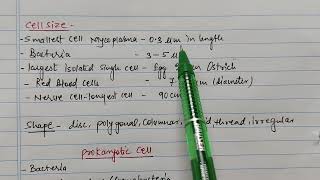 Cell size -
- Smallest cell Mycoplasma - 0.3 μm in length
- Bacteria - 3-5 μ
- largest Isolated Single cell - Egg Ostrich
- Red Blood Cells - 7 (diameter)
- Nerve cell - longest cell - 90cm
Shape - disc, polygonal, Columnar, thread, Irregular
prokaryotic Cell
- Bacteria